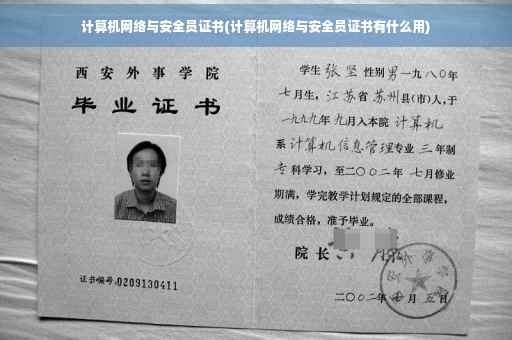 计算机网络与安全员证书(计算机网络与安全员证书有什么用)
西安外事学院
毕业证书
证书编号:0209130411
学生 张坚 性别男一九八〇年
七月生,江苏省苏州县(市)人,于
一九九九年九月入本院 计算机
系计算机信息管理专业 三 年制
专科学习,至二〇〇二年 七月修业
期满,学完教学计划规定的全部课程,
成绩合格,准予毕业。
院长
二〇〇二年 月五日